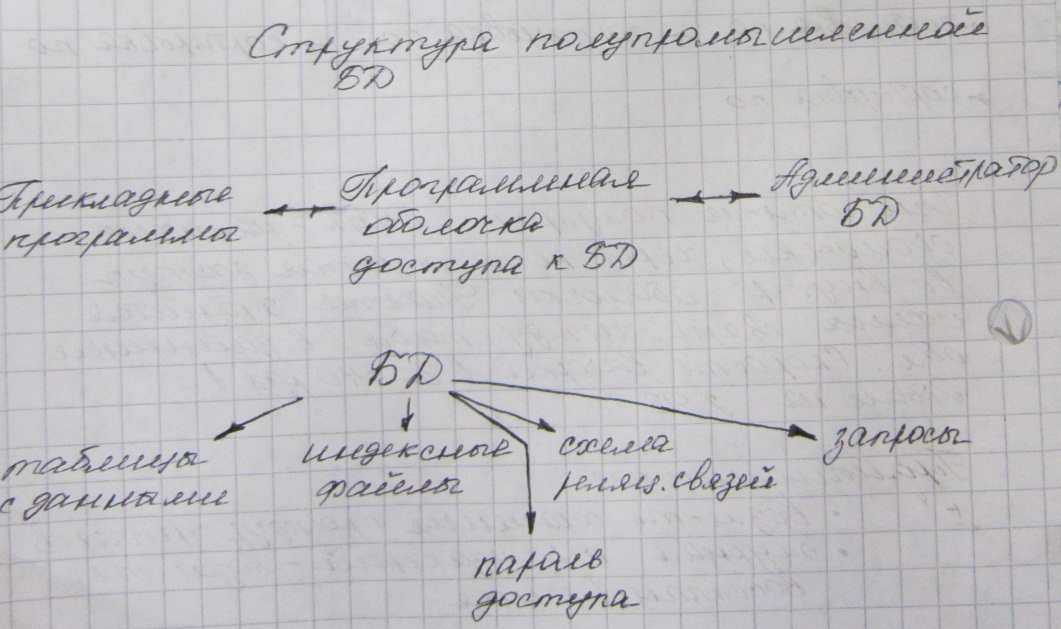 Структура полупромышленной
БД
Прикладные
программы
Программная
оболочка
доступа к БД
Администратор
БД
БД
таблицы
с данными
индексные
файлы
схема
реляц. связей
запросы
пароль
доступа